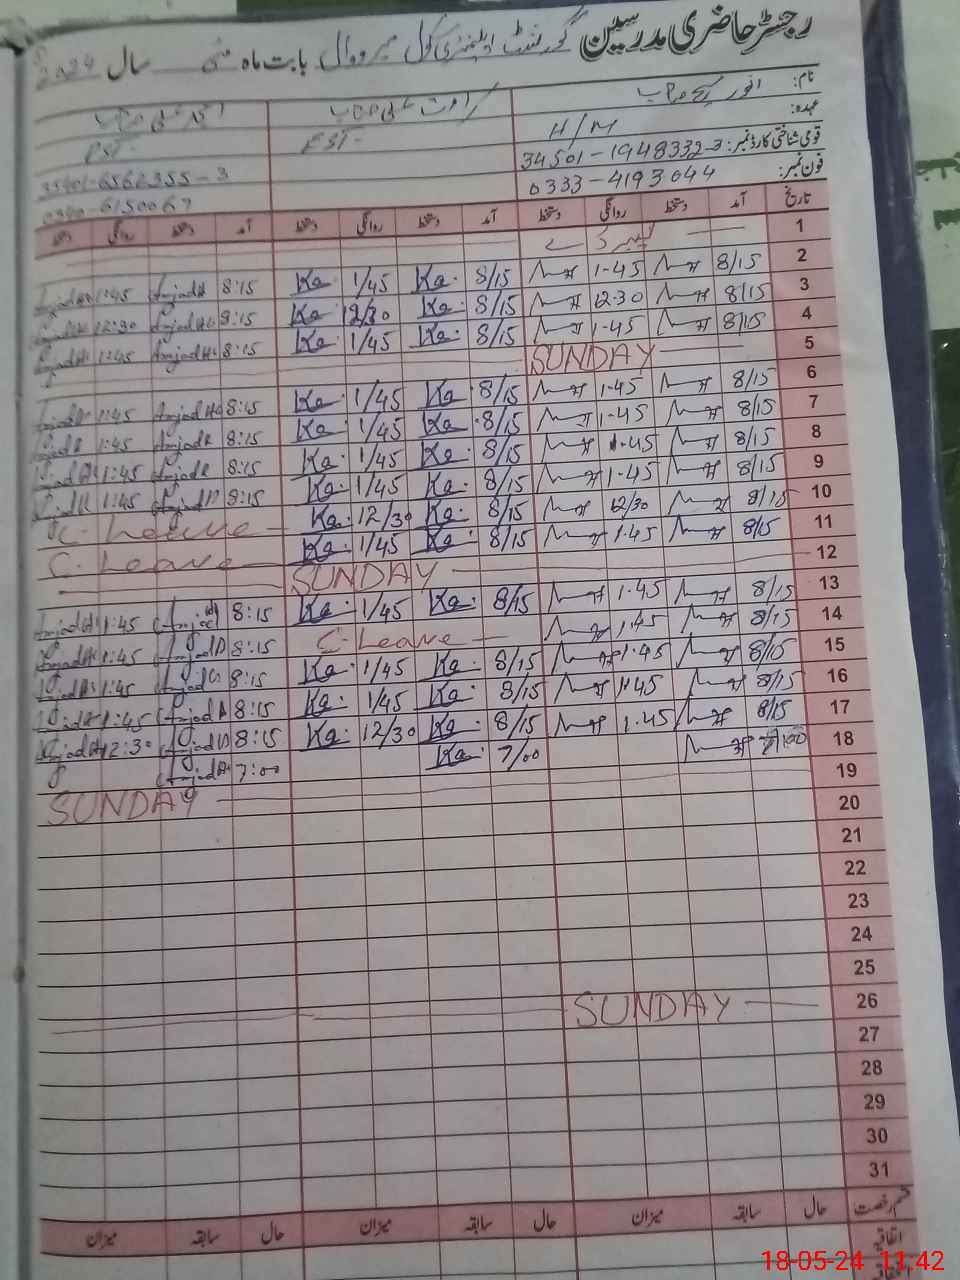 رجسٹر حاضری مدرسین گورنمنٹ ایلیمنٹری سکول میرووال بابت ماہ مئی سال 2024
نام: انور مسیح صاحب علی صاحب علی صاحب
عہدہ: H/M EST- PST-
قومی شناختی کارڈ نمبر: 34501-1948332-3 35401-6562355-3
فون نمبر: 0333-4193044 0340-6150067
تاریخ آمد دستخط روانگی دستخط آمد دستخط روانگی دستخط آمد دستخط روانگی دستخط
1 لیبر ڈے
2 8/15 1.45 8/15 Ka. 1/45 Ka. 8:15 AmjadA 1:45
3 8/15 12.30 8/15 Ka. 12/30 Ka. 8:15 12:30
4 8/15 1.45 8/15 Ka. 1/45 Ka. 8:15 1:45
5 SUNDAY
6 8/15 1.45 8/15 Ka. 1/45 Ka. 8:15 1:45
7 8/15 1.45 8/15 Ka. 1/45 Ka. 8:15 1:45
8 8/15 1.45 8/15 Ka. 1/45 Ka. 8:15 1:45
9 8/15 1.45 8/15 Ka. 1/45 Ka. 8:15 1:45
10 8/15 12/30 8/15 Ka. 12/30 Ka. C. Leave
11 8/15 1.45 8/15 Ka. 1/45 Ka. C. Leave
12 SUNDAY
13 8/15 1.45 8/15 Ka. 1/45 Ka. 8:15 1:45
14 8/15 1.45 C-Leave 8:15 1:45
15 8/15 1.45 8/15 Ka. 1/45 Ka. 8:15 1:45
16 8/15 1.45 8/15 Ka. 1/45 Ka. 8:15 1:45
17 8/15 1.45 8/15 Ka. 12/30 Ka. 8:15 12:30
18 7/00 7/00 Ka. 7:00
19 SUNDAY
20
21
22
23
24
25
26 SUNDAY
27
28
29
30
31
قسم رخصت حال سابقہ میزان حال سابقہ میزان حال سابقہ میزان
اتفاقیہ
18-05-24 11:42